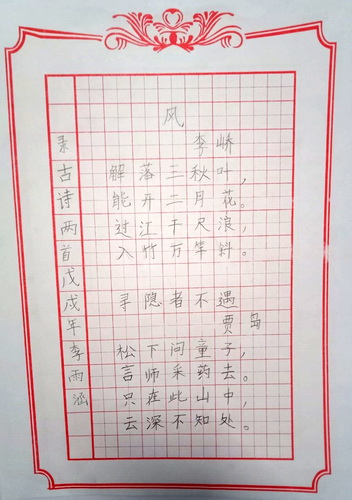 风
李峤
解落三秋叶，
能开二月花。
过江千尺浪，
入竹万竿斜。
寻隐者不遇
贾岛
松下问童子，
言师采药去。
只在此山中，
云深不知处。
录古诗两首戊戌年李雨涵